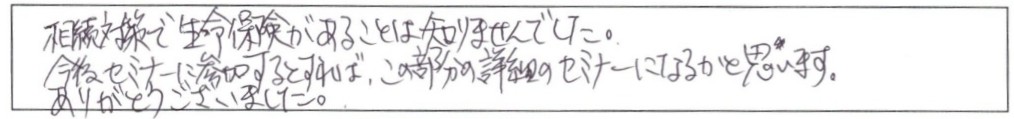 相続対策で生命保険があることは知りませんでした。
今後セミナーに参加するとすれば、この部分の詳細のセミナーになるかと思います。
ありがとうございました。